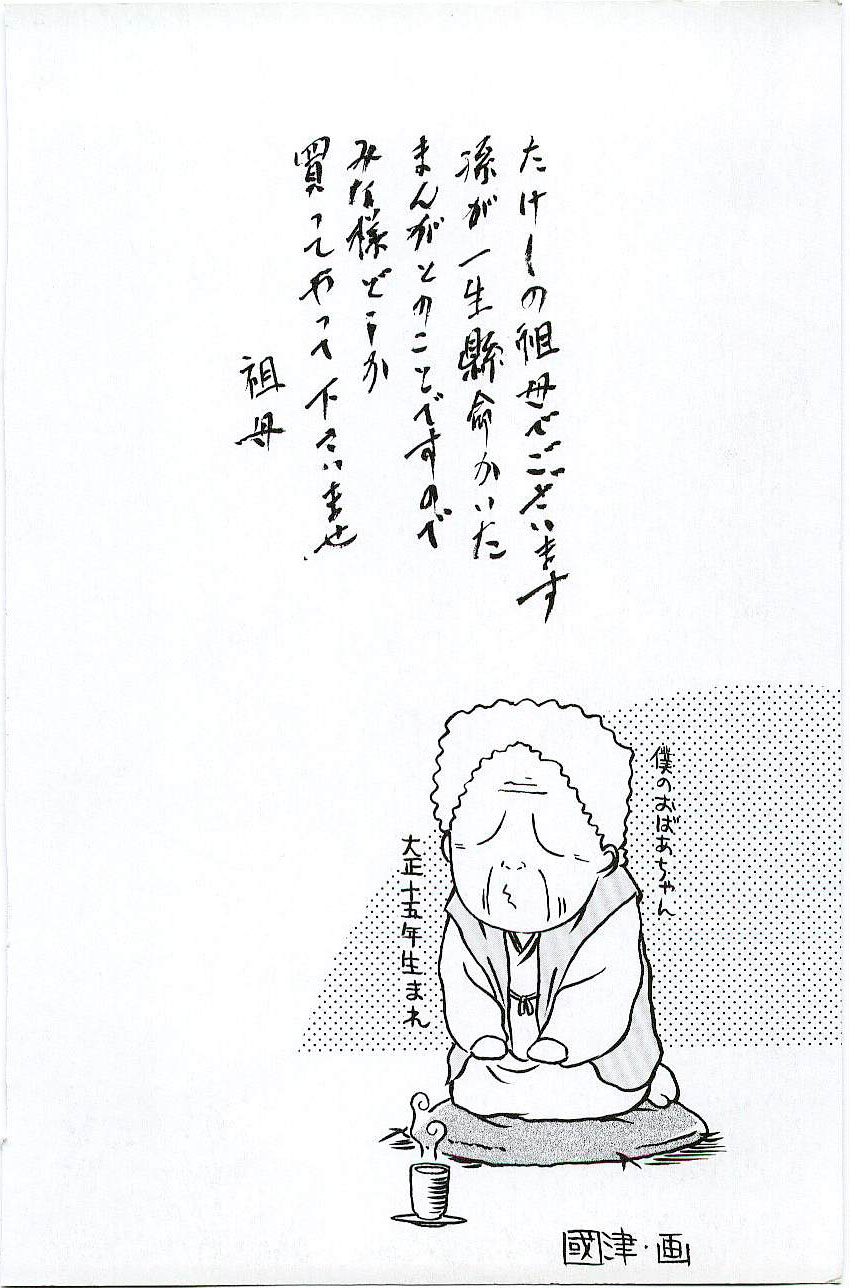 たけしの祖母でございます
孫が一生縣命かいた
まんがとのことですので
みな様どうか
買ってやって下さいませ
祖母
僕のおばあちゃん
大正十五年生まれ
國津・画